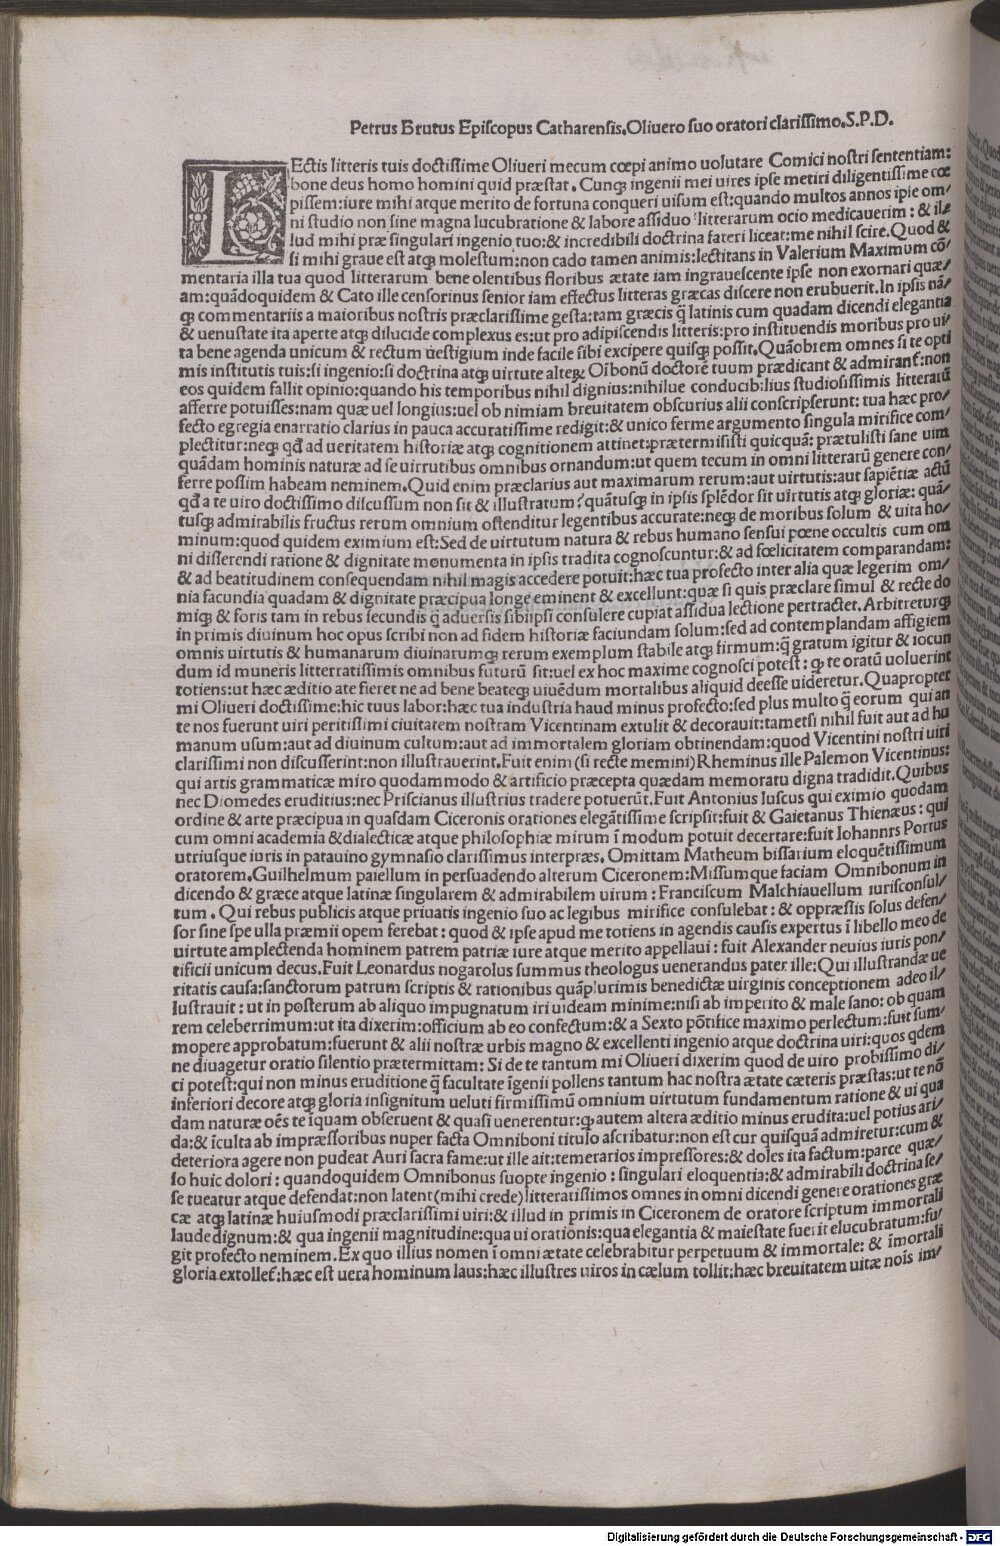 Petrus Brutus Episcopus Catharensis.Oliuero suo oratori clarissimo.S.P.D.
LEctis litteris tuis doctissime Oliueri mecum cœpi animo uolutare Comici nostri sententiam:
bone deus homo homini quid præstat. Cunq; ingenii mei uires ipse metiri diligentissime cœ
pissem:iure mihi atque merito de fortuna conqueri uisum est:quando multos annos ipse om/
ni studio non sine magna lucubratione & labore assiduo litterarum ocio medicauerim: & il/
lud mihi præ singulari ingenio tuo:& incredibili doctrina fateri liceat:me nihil scire.Quod &
si mihi graue est atq; molestum:non cado tamen animis:lectitans in Valerium Maximum cō/
mentaria illa tua quod litterarum bene olentibus floribus ætate iam ingrauescente ipse non exornari quæ/
am:quādoquidem & Cato ille censorinus senior iam effectus litteras græcas discere non erubuerit.In ipsis nā/
q; commentariis a maioribus nostris præclarissime gesta:tam græcis q̄ latinis cum quadam dicendi elegantia
& uenustate ita aperte atq; dilucide complexus es:ut pro adipiscendis litteris:pro instituendis moribus pro ui/
ta bene agenda unicum & rectum uestigium inde facile sibi excipere quisq; possit.Quāobrem omnes si te opti
mis institutis tuis:si ingenio:si doctrina atq; uirtute alteꝝ Oībonū doctorē tuum prædicant & admiranť:non
eos quidem fallit opinio:quando his temporibus nihil dignius:nihilue conducibilius studiosissimis litterarū
afferre potuisses:nam quæ uel longius:uel ob nimiam breuitatem obscurius alii conscripserunt: tua hæc pro/
fecto egregia enarratio clarius in pauca accuratissime redigit:& unico ferme argumento singula mirifice com/
plectitur:neq; qđ ad ueritatem historiæ atq; cognitionem attinet:prætermisisti quicquā: prætulisti sane uim
quādam hominis naturæ ad se uirrutibus omnibus ornandum:ut quem tecum in omni litterarū genere con/
ferre possim habeam neminem.Quid enim præclarius aut maximarum rerum:aut uirtutis:aut sapiētiæ actū
qđ a te uiro doctissimo discussum non sit & illustratum? quātusq; in ipsis splēdor sit uirtutis atq; gloriæ: quā/
tusq; admirabilis fructus rerum omnium ostenditur legentibus accurate:neq; de moribus solum & uita ho/
minum:quod quidem eximium est:Sed de uirtutum natura & rebus humano sensui pœne occultis cum om
ni disserendi ratione & dignitate monumenta in ipsis tradita cognoscuntur:& ad fœlicitatem comparandam:
& ad beatitudinem consequendam nihil magis accedere potuit:hæc tua profecto inter alia quæ legerim om/
nia facundia quadam & dignitate præcipua longe eminent & excellunt:quæ si quis præclare simul & recte do
miq; & foris tam in rebus secundis q̄ aduersis sibiipsi consulere cupiat assidua lectione pertractet.Arbitreturq;
in primis diuinum hoc opus scribi non ad fidem historiæ faciundam solum:sed ad contemplandam affigiem
omnis uirtutis & humanarum diuinarumq; rerum exemplum stabile atq; firmum:q̄ gratum igitur & iocun
dum id muneris litterratissimis omnibus futurū sit:uel ex hoc maxime cognosci potest: q; te oratū uoluerint
totiens:ut hæc æditio a te fieret ne ad bene beateq; uiuēdum mortalibus aliquid deesse uideretur.Quapropter
mi Oliueri doctissime:hic tuus labor:hæc tua industria haud minus profecto:sed plus multo q̄ eorum qui an
te nos fuerunt uiri peritissimi ciuitatem nostram Vicentinam extulit & decorauit:tametsi nihil fuit aut ad hu
manum usum:aut ad diuinum cultum:aut ad immortalem gloriam obtinendam:quod Vicentini nostri uiri
clarissimi non discusserint:non illustrauerint.Fuit enim (si recte memini) Rheminus ille Palemon Vicentinus:
qui artis grammaticæ miro quodammodo & artificio præcepta quædam memoratu digna tradidit.Quibus
nec Diomedes eruditius:nec Priscianus illustrius tradere potuerūt.Fuit Antonius luscus qui eximio quodam
ordine & arte præcipua in quasdam Ciceronis orationes elegātissime scripsit:fuit & Gaietanus Thienæus: qui
cum omni academia & dialecticæ atque philosophiæ mirum ī modum potuit decertare:fuit Iohannrs Portus
utriusque iuris in patauino gymnasio clarissimus interpræs. Omittam Matheum bissarium eloquētissimum
oratorem.Guilhelmum paiellum in persuadendo alterum Ciceronem:Missumque faciam Omnibonum in
dicendo & græce atque latinæ singularem & admirabilem uirum: Franciscum Malchiauellum iurisconsul/
tum. Qui rebus publicis atque priuatis ingenio suo ac legibus mirifice consulebat: & oppræssis solus defen/
sor sine spe ulla præmii opem ferebat: quod & ipse apud me totiens in agendis causis expertus ī libello meo de
uirtute amplectenda hominem patrem patriæ iure atque merito appellaui: fuit Alexander neuius iuris pon/
tificii unicum decus.Fuit Leonardus nogarolus summus theologus uenerandus pater ille:Qui illustrandæ ue
ritatis causa:sanctorum patrum scriptis & rationibus quāplurimis benedictæ uirginis conceptionem adeo il/
lustrauit: ut in posterum ab aliquo impugnatum iri uideam minime:nisi ab imperito & male sano: ob quam
rem celeberrimum:ut ita dixerim:officium ab eo confectum:& a Sexto pōtifice maximo perlectum:fuit sum/
mopere approbatum:fuerunt & alii nostræ urbis magno & excellenti ingenio atque doctrina uiri:quos qdem
ne diuagetur oratio silentio prætermittam: Si de te tantum mi Oliueri dixerim quod de uiro probissimo di/
ci potest:qui non minus eruditione q̄ facultate īgenii pollens tantum hac nostra ætate cæteris præstas:ut te nō
inferiori decore atq; gloria insignitum ueluti firmissimū omnium uirtutum fundamentum ratione & ui qua
dam naturæ oēs te iquam obseruent & quasi uenerentur:q; autem altera æditio minus erudita:uel potius ari/
da:& īculta ab impræssoribus nuper facta Omniboni titulo ascribatur:non est cur quisquā admiretur:cum &
deteriora agere non pudeat Auri sacra fame:ut ille ait:temerarios impressores:& doles ita factum:parce quæ/
so huic dolori: quandoquidem Omnibonus suopte ingenio: singulari eloquentia:& admirabili doctrina se/
se tueatur atque defendat:non latent (mihi crede) litteratissimos omnes in omni dicendi genere orationes græ
cæ atq; latinæ huiusmodi præclarissimi uiri:& illud in primis in Ciceronem de oratore scriptum immortali
laude dignum:& qua ingenii magnitudine:qua ui orationis:qua elegantia & maiestate fuerit elucubratum:fu/
git profecto neminem.Ex quo illius nomen ī omni ætate celebrabitur perpetuum & immortale: & īmortali
gloria extolleť:hæc est uera hominum laus:hæc illustres uiros in cælum tollit:hæc breuitatem uitæ noīs im/
Digitalisierung gefördert durch die Deutsche Forschungsgemeinschaft - DFG